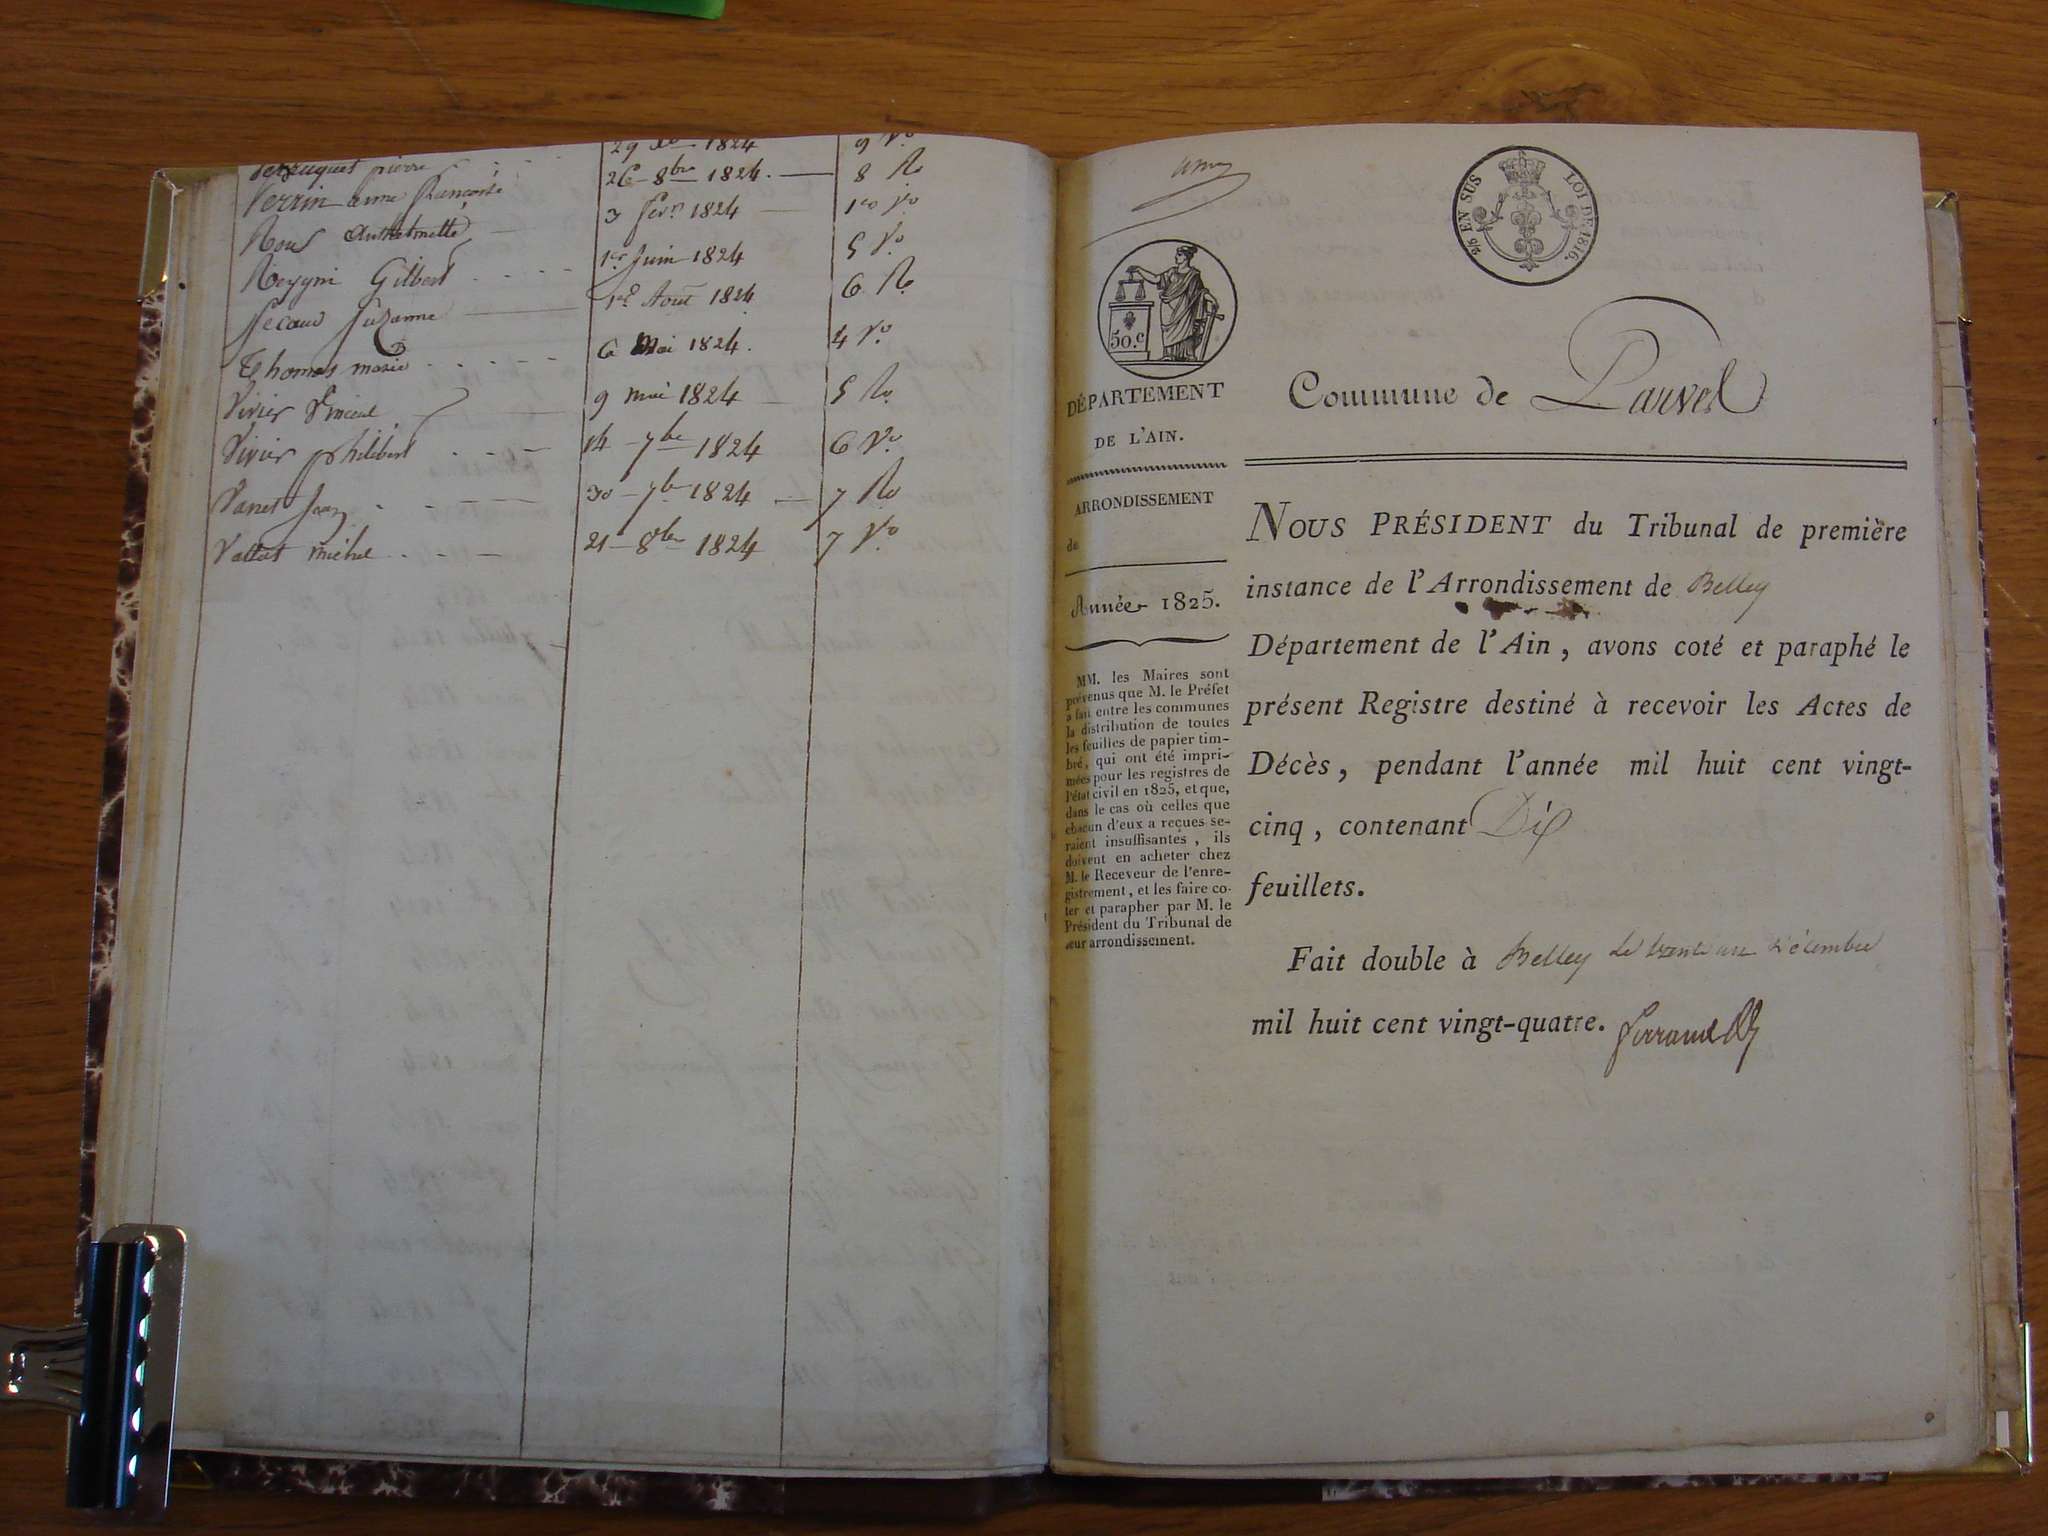 29 1824 9 Vo
pierre 26 8bre 1824. 8 Ro
Perrin anne 3 fevr 1824 1ro Vo
Roux 1er Juin 1824 5 Vo
Reygni Gilbert 1er Août 1824 6 Ro
Suzanne 6 Mai 1824. 4 Vo
Thomas marie 9 mai 1824 5 Ro
Vivier 14 7bre 1824 6 Vo
Vivier philibert 30 7bre 1824 7 Ro
Vanet Jean 21 8bre 1824 7 Vo
Vallat michel
2/5 EN SUS LOI DE 1816.
50.c
DÉPARTEMENT
DE L'AIN.
ARRONDISSEMENT
de
Année 1825.
MM. les Maires sont
prévenus que M. le Préfet
a fait entre les communes
la distribution de toutes
les feuilles de papier tim-
bré, qui ont été impri-
mées pour les registres de
l'état civil en 1825, et que,
dans le cas où celles que
chacun d'eux a reçues se-
raient insuffisantes, ils
doivent en acheter chez
M. le Receveur de l'enre-
gistrement, et les faire co-
ter et parapher par M. le
Président du Tribunal de
leur arrondissement.
Commune de Parves
NOUS PRÉSIDENT du Tribunal de première
instance de l'Arrondissement de Belley
Département de l'Ain, avons coté et paraphé le
présent Registre destiné à recevoir les Actes de
Décès, pendant l'année mil huit cent vingt-
cinq, contenant Dix
feuillets.
Fait double à Belley le trente un décembre
mil huit cent vingt-quatre.